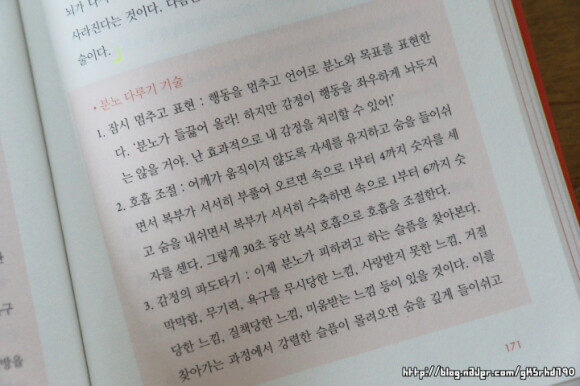 뇌가
사라진다는 것이다. 다음은
술이다.
• 분노 다루기 기술
1. 잠시 멈추고 표현 : 행동을 멈추고 언어로 분노와 목표를 표현한
다. '분노가 들끓어 올라! 하지만 감정이 행동을 좌우하게 놔두지
는 않을 거야. 난 효과적으로 내 감정을 처리할 수 있어!'
2. 호흡 조절 : 어깨가 움직이지 않도록 자세를 유지하고 숨을 들이쉬
면서 복부가 서서히 부풀어 오르면 속으로 1부터 4까지 숫자를 세
고 숨을 내쉬면서 복부가 서서히 수축하면 속으로 1부터 6까지 숫
자를 센다. 그렇게 30초 동안 복식 호흡으로 호흡을 조절한다.
3. 감정의 파도타기 : 이제 분노가 피하려고 하는 슬픔을 찾아본다.
막막함, 무기력, 욕구를 무시당한 느낌, 사랑받지 못한 느낌, 거절
당한 느낌, 질책당한 느낌, 미움받는 느낌 등이 있을 것이다. 이를
찾아가는 과정에서 강렬한 슬픔이 몰려오면 숨을 깊게 들이쉬고
171
구
방을
http://blog.naver.com/gk5rhd790